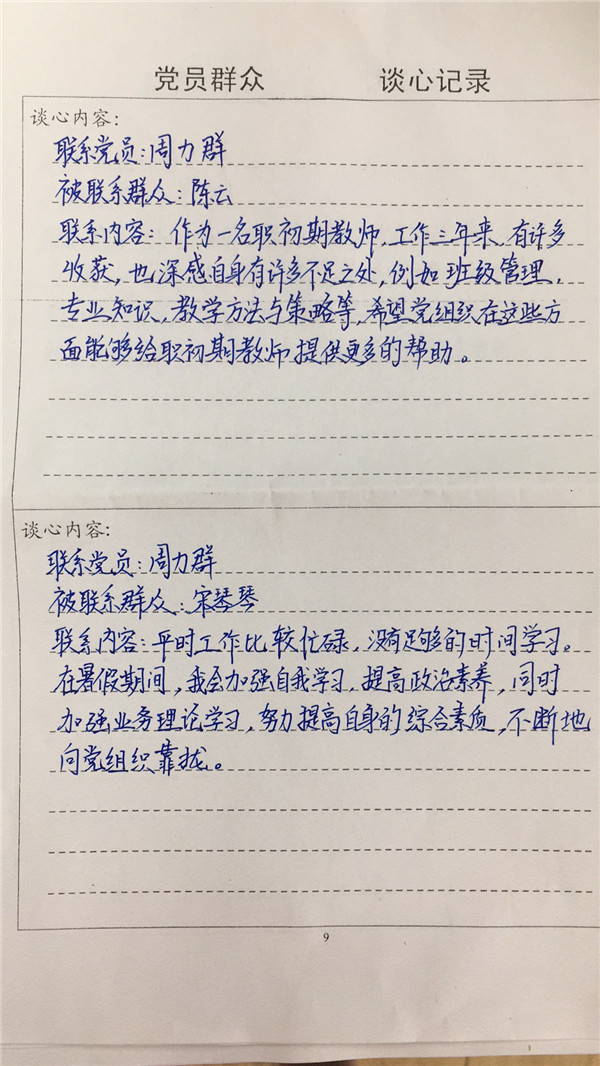 党员群众 谈心记录
谈心内容：
联系党员：周力群
被联系群众：陈云
联系内容：作为一名职初期教师，工作三年来，有许多
收获，也深感自身有许多不足之处，例如班级管理，
专业知识，教学方法与策略等，希望党组织在这些方
面能够给职初期教师提供更多的帮助。
谈心内容：
联系党员：周力群
被联系群众：宋琴琴
联系内容：平时工作比较忙碌，没有足够的时间学习。
在暑假期间，我会加强自我学习，提高政治素养，同时
加强业务理论学习，努力提高自身的综合素质，不断地
向党组织靠拢。
9